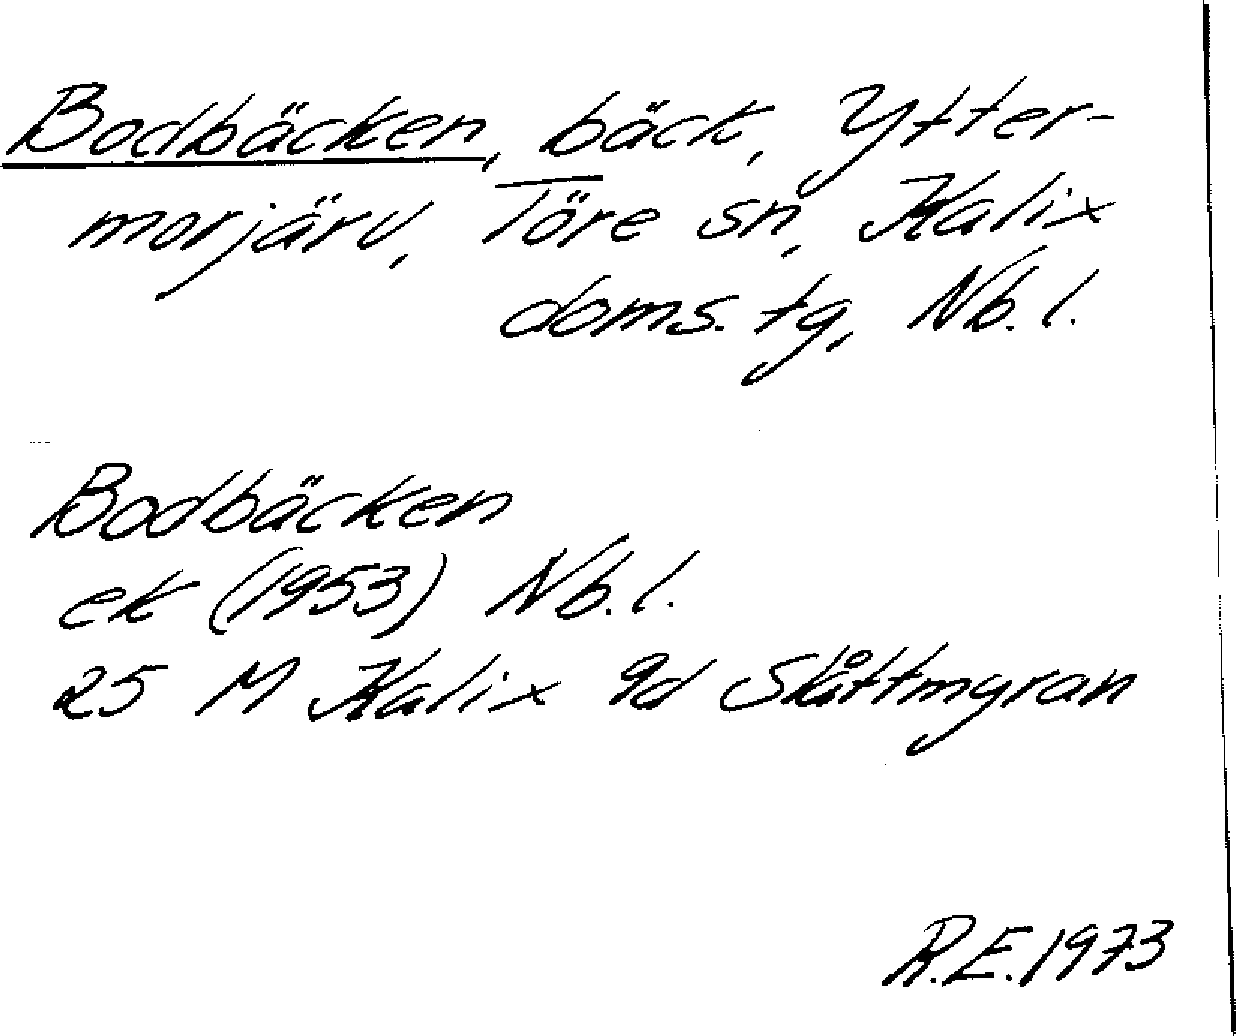 Bodbäcken, bäck, Ytter-
morjärv, Töre sn, Kalix
doms. tg, Nb. l.
Bodbäcken
ek (1953) Nb. l.
25 M Kalix 9d Slåttmyran
R.E. 1973